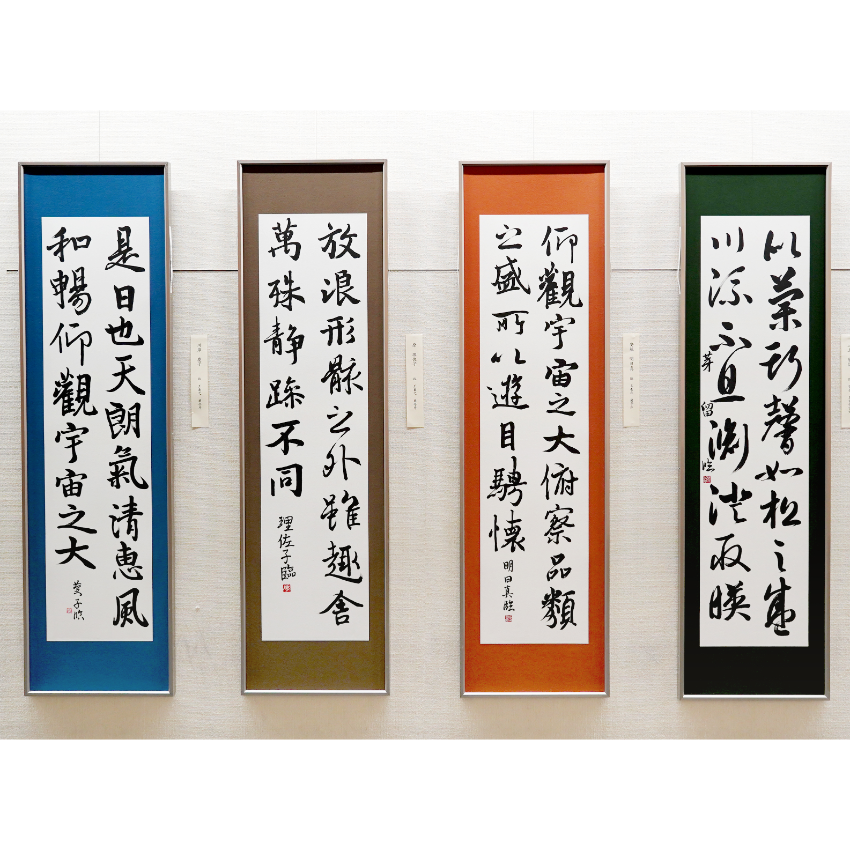 是日也天朗氣清恵風
和暢仰觀宇宙之大
子臨
放浪形骸之外雖趣舍
萬殊静躁不同
理佐子臨
仰觀宇宙之大俯察品類
之盛所以遊目騁懐
明日真臨
似蘭斯馨如松之盛
川流不息淵澄取暎
芽留臨